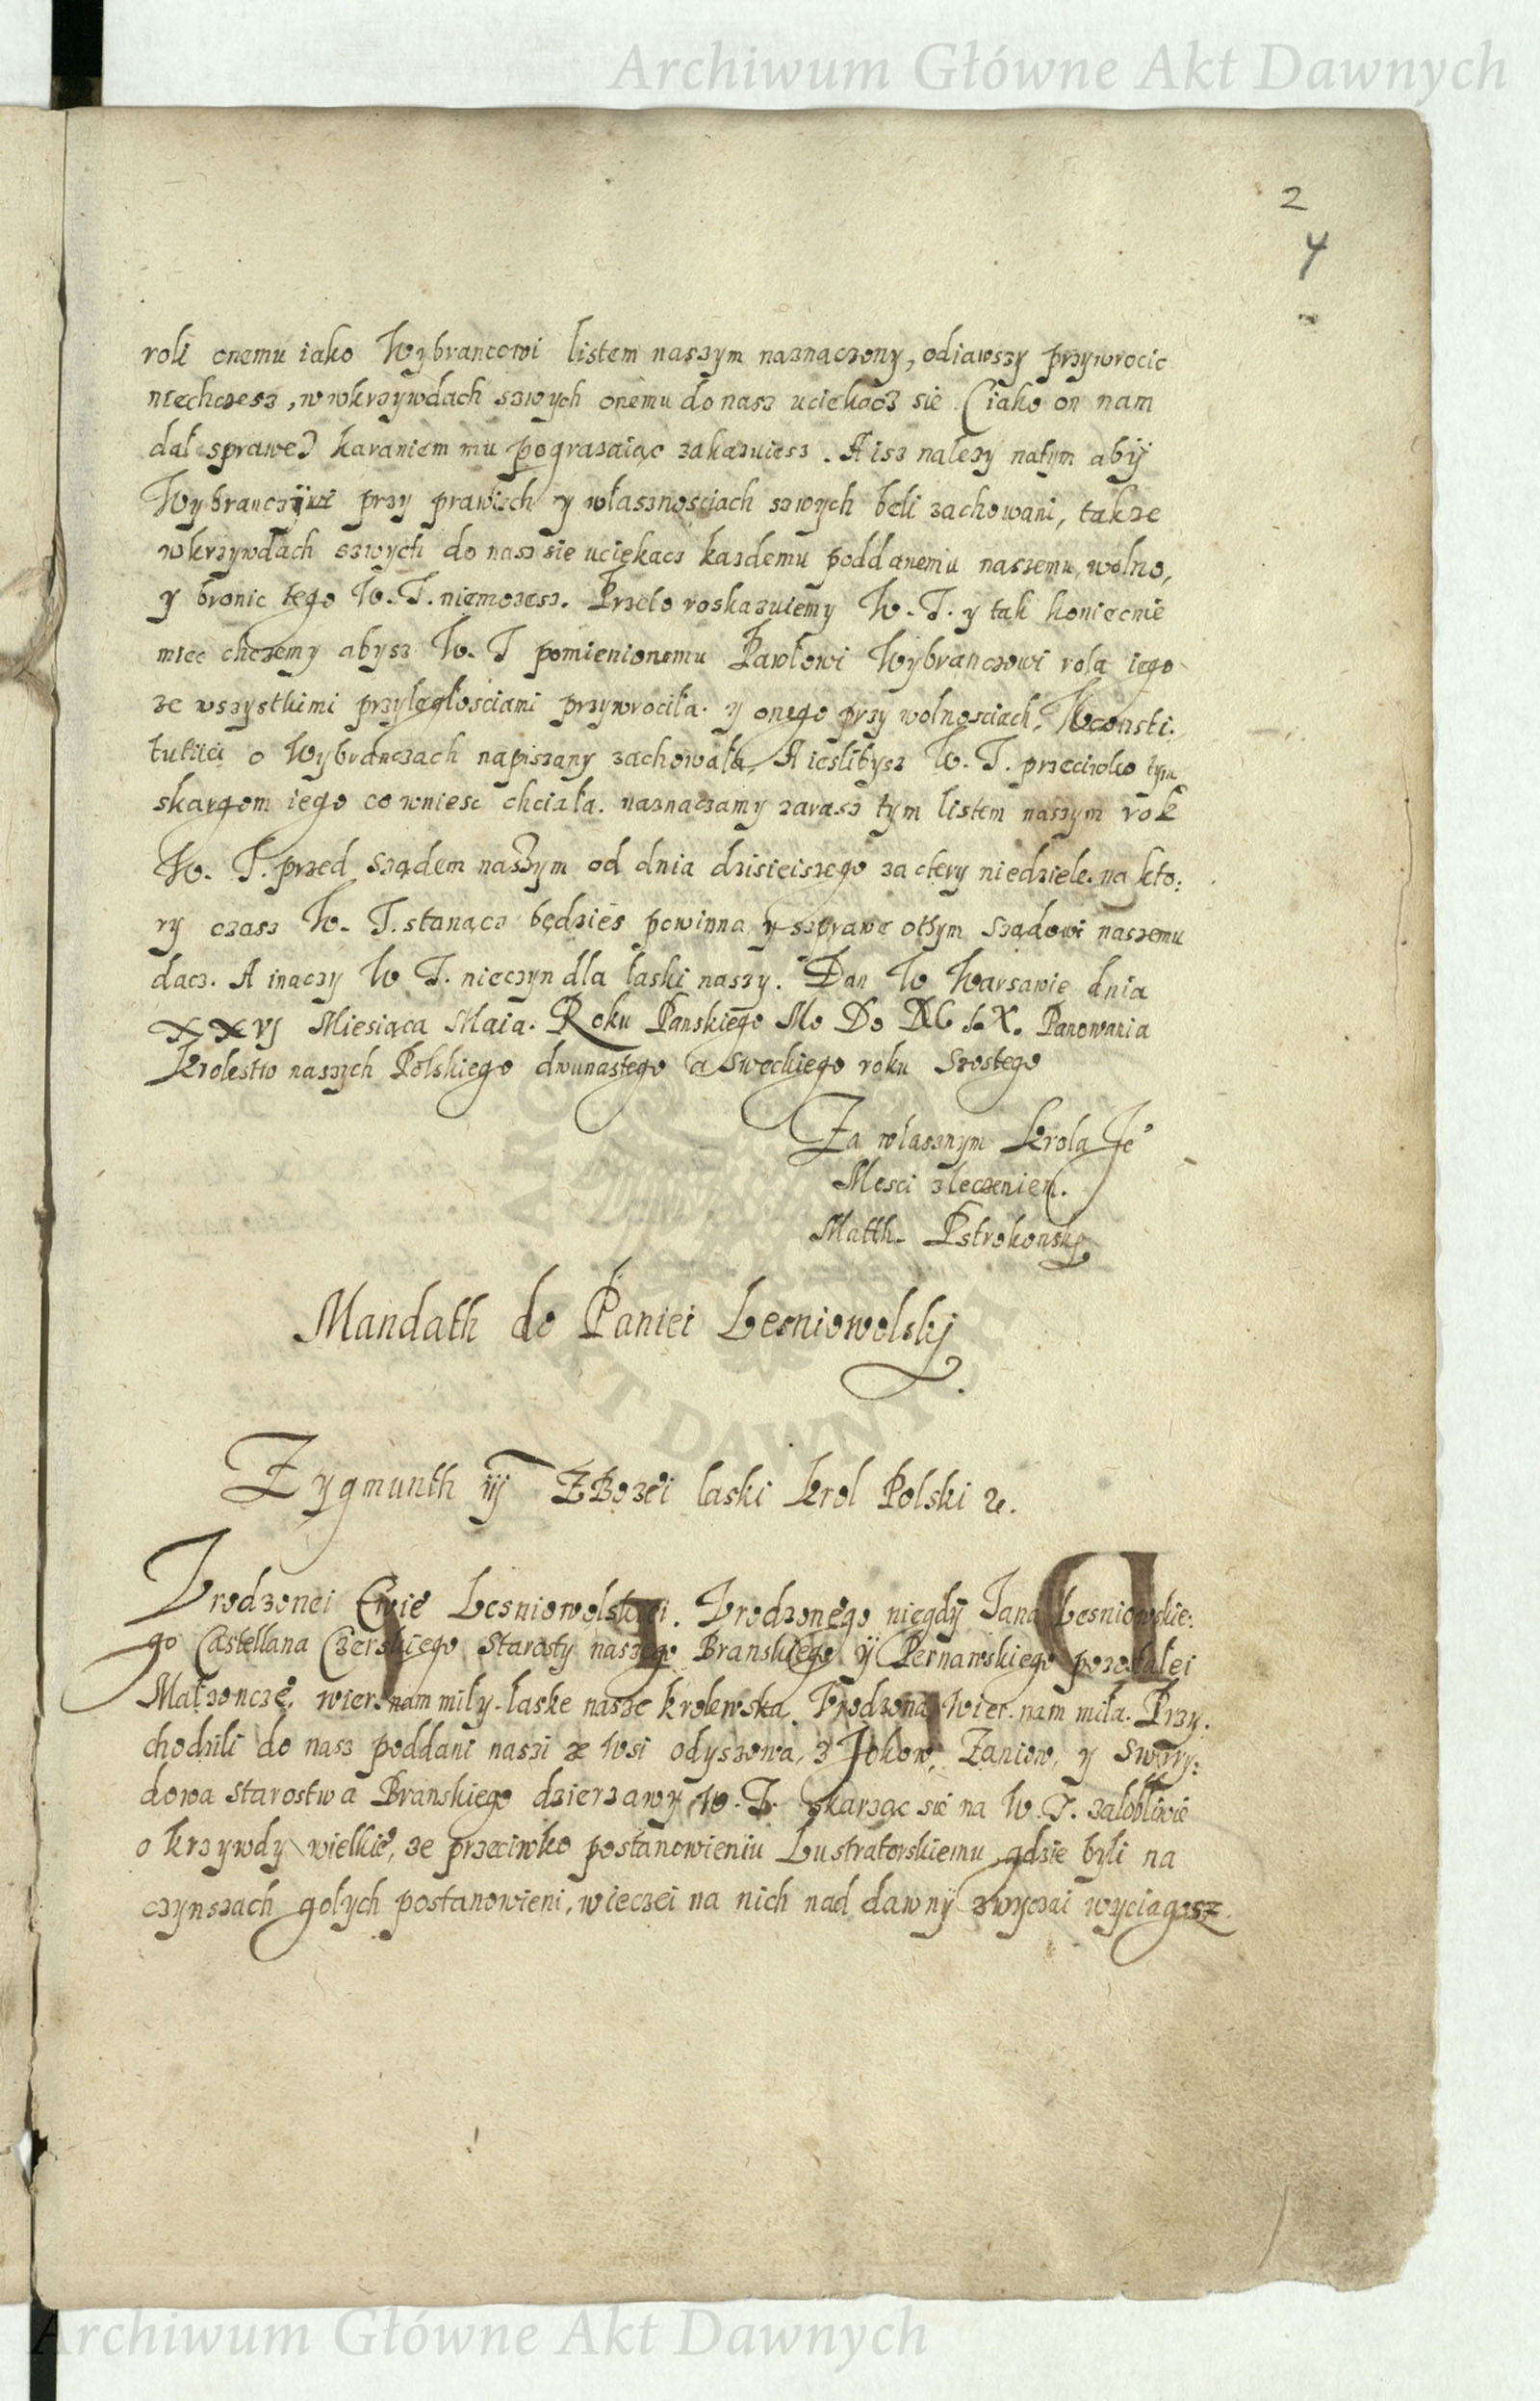 Archiwum Główne Akt Dawnych
2
4
roli onemu iako Wybrancowi listem naszym naznaczony, odiawszy przywrocic
niechczesz, w wkrzywdach szwych onemu do nasz uciekacz sie (iako on nam
dał sprawe) karaniem mu pograzaiąc zakazuiesz. A isz nalezy natym abÿ
Wybranczÿ przy prawiech y własznosciach szwych beli zachowani, takze
wkrzywdach szwych do nasz sie uciękacz kazdemu poddanemu naszemu, wolno,
y bronic tego W. T. niemozesz. Przeto roskazuiemy W. T. y tak koniecnie
miec chczemy abysz W. T pomienionemu Pawłowi Wybranczowi rola iego
ze wszystkimi przyległosciami przywrociła. y onego przy wolnosciach, Wconsti.
tutiiei o Wybranczach napiszany zachowała, A ieslibysz W. T. przeciwko tym
skargom iego co wniesc chciała. naznaczamy zarasz tym listem naszym rok
W. T. przed sządem naszym od dnia dzisieiszego za ctery niedziele. na kto:
ry czasz W. T. stanącz będzies powinna y szprawe otym sządowi naszemu
dacz. A inaczy W T. nieczyn dla łaski naszy. Dan W Warsawie dnia
XXVJ Miesiąca Maia. Roku Panskiego Mo Do XC .X. Panowania
Krolestw naszych Polskiego dwunastego a Sweckiego roku szostego
Za własznym Krola Je°
Mesci zleczeniem.
Matth. Pstrokonsky
Mandath do Paniei Lesniowolskÿ
Zygmunth iij Z Bozei laski Krol Polski &c.
Vrodzonei Ewie Lesniowolskiei. Vrodzonego niegdÿ Jana Lesniowskie:
go Castellana Czerskiego Starosty naszego Branskiego ÿ Pernawskiego pozostałei
Małzonczę, wier. nam miły. laske nasze krolewska. Vrodzona Wier. nam miła. Przy.
chodzili do nasz poddani naszi ze Wsi odyszowa, z Jokow, Zaniow, y Swiry:
dowa Starostwa Branskiego dzierzawy W. T. skarząc sie na W. T. załobliwie
o krzywdy wielkie, ze przeciwko postanowieniu Lustratorskiemu gdzie byli na
czynszach gołych postanowieni, wieczei na nich nad dawnÿ zwyczai wyciagasz.
Archiwum Główne Akt Dawnych